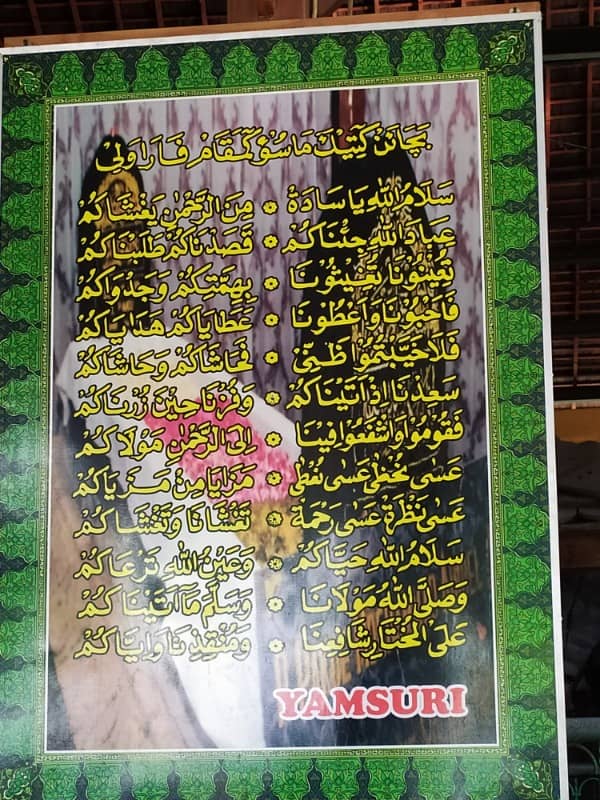 بچاءن كتيك ماسوء كمقام فارا ولي
سَلَامُ اللهِ يَا سَادَةْ ۞ مِنَ الرَّحْمٰنِ يَغْشَاكُمْ
عِبَادَ اللهِ جِئْنَاكُمْ ۞ قَصَدْنَاكُمْ طَلَبْنَاكُمْ
تُعِيْنُوْنَا تُغِيْثُوْنَا ۞ بِهِمَّتِكُمْ وَجَدْوَاكُمْ
فَاحْبُوْنَا وَاعْطُوْنَا ۞ عَطَايَاكُمْ هَدَايَاكُمْ
فَلَا خَيَّبْتُمُوْا ظَنِّيْ ۞ فَحَاشَاكُمْ وَحَاشَاكُمْ
سَعِدْنَا اِذْ اَتَيْنَاكُمْ ۞ وَفُزْنَا حِيْنَ زُرْنَاكُمْ
فَقُوْمُوْا وَاشْفَعُوْا فِيْنَا ۞ اِلَى الرَّحْمٰنِ مَوْلَاكُمْ
عَسَى نُحْظَى عَسَى نُعْطَى ۞ مَزَايَا مِنْ مَزَيَاكُمْ
عَسَى نَظْرَةْ عَسَى رَحْمَةْ ۞ تَغْشَانَا وَتَغْشَاكُمْ
سَلَامُ اللهِ حَيَّاكُمْ ۞ وَعَيْنُ اللهِ تَرْعَاكُمْ
وَصَلَّى اللهُ مَوْلَانَا ۞ وَسَلَّمْ مَا اَتَيْنَاكُمْ
عَلَى الْمُخْتَارِ شَافِعِنَا ۞ وَمُنْقِذِنَا وَاِيَّاكُمْ
YAMSURI